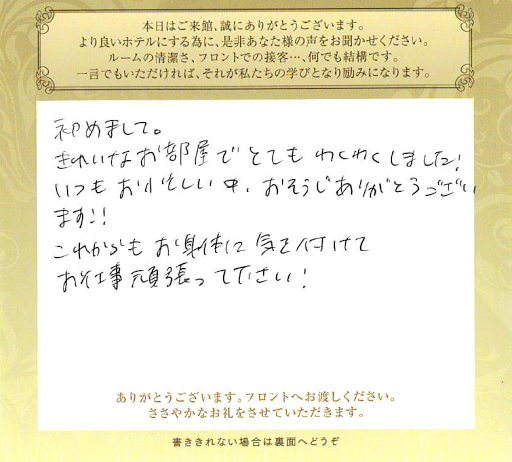 本日はご来館、誠にありがとうございます。
より良いホテルにする為に、是非あなた様の声をお聞かせください。
ルームの清潔さ、フロントでの接客…、何でも結構です。
一言でもいただければ、それが私たちの学びとなり励みになります。
初めまして。
きれいなお部屋でとてもわくわくしました!
いつもお忙しい中、おそうじありがとうござい
ます!!
これからもお身体に気を付けて
お仕事頑張って下さい!
ありがとうございます。フロントへお渡しください。
ささやかなお礼をさせていただきます。
書ききれない場合は裏面へどうぞ